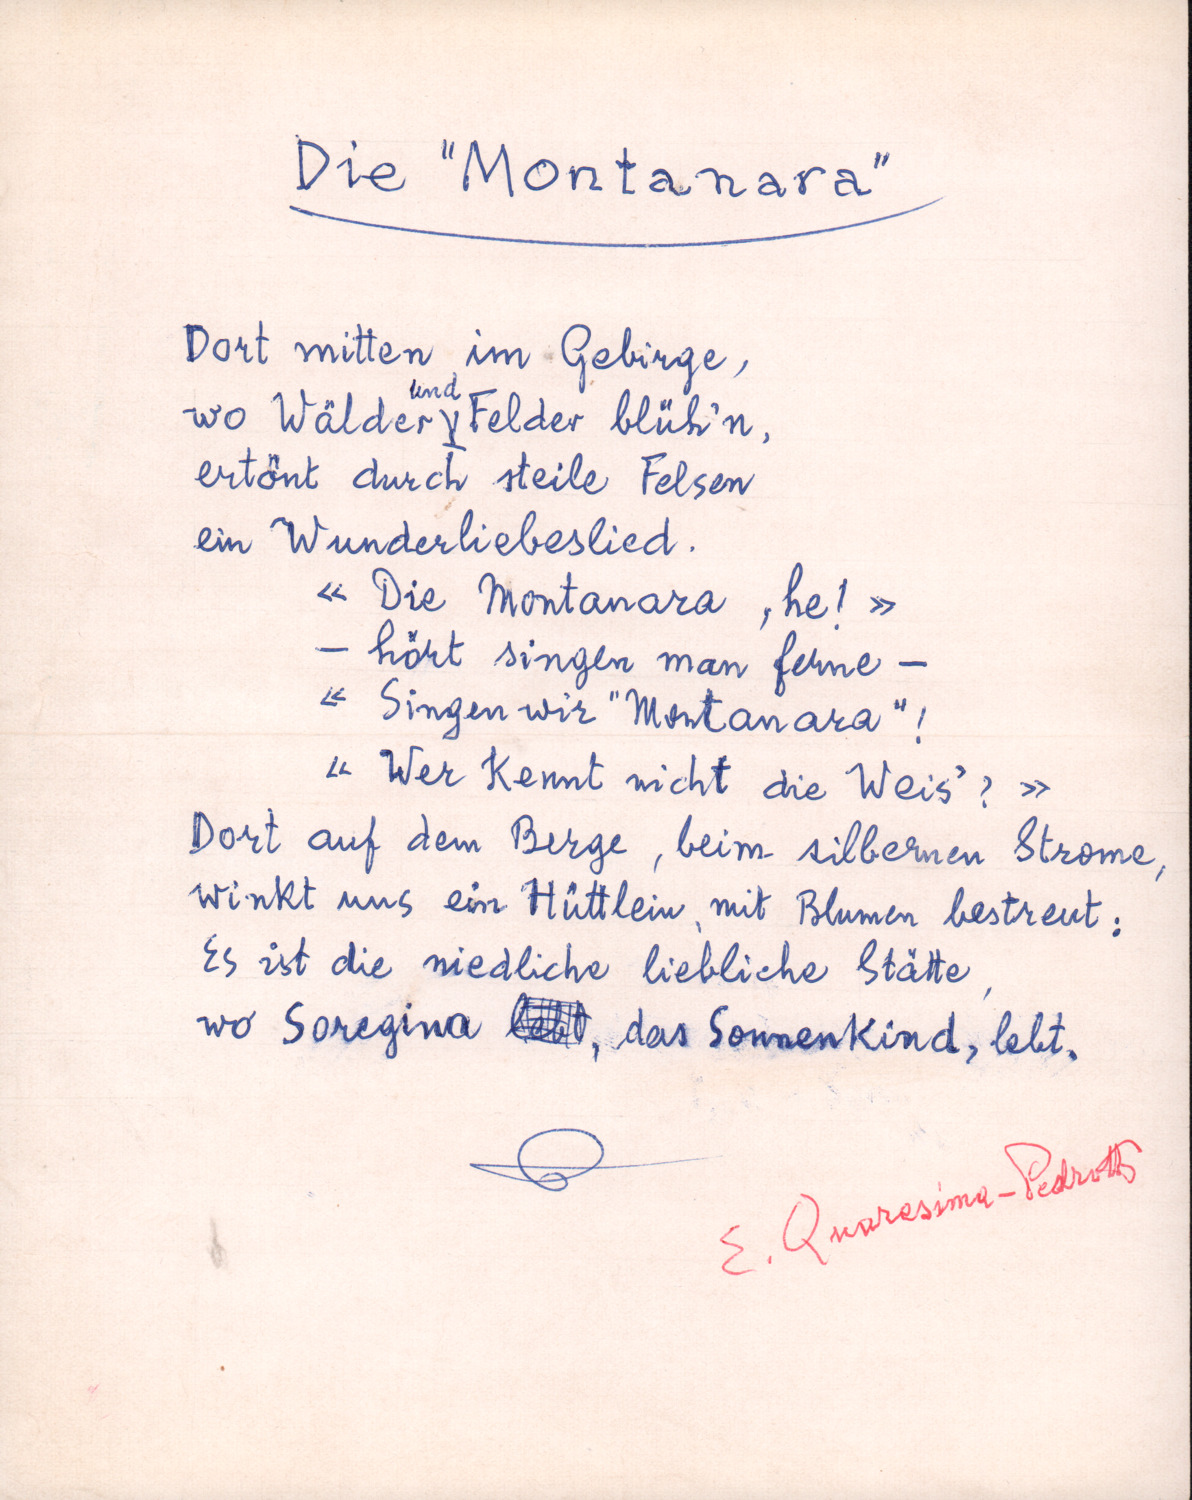 Die "Montanara"
Dort mitten im Gebirge,
wo Wälder und Felder blüh'n,
ertönt durch steile Felsen
ein Wunderliebeslied.
« Die Montanara, he! »
– hört singen man ferne –
« Singen wir "Montanara"!
« Wer kennt nicht die Weis'? »
Dort auf dem Berge, beim silbernen Strome,
winkt uns ein Hüttlein, mit Blumen bestreut:
Es ist die niedliche liebliche Stätte,
wo Soregina lebt, das Sonnenkind, lebt.
E. Quaresima-Pedrotti